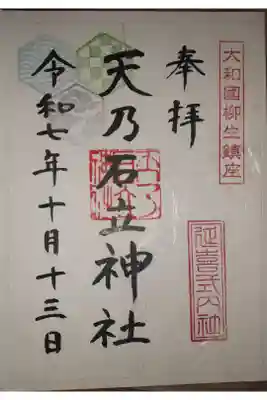 大和國柳生鎮座
奉拝
延喜式内社
天乃石立神社
令和七年十月十三日